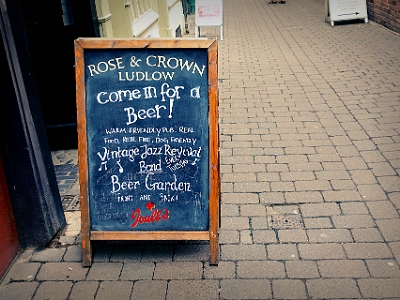 ROSE & CROWN
LUDLOW
Come in for a
Beer!
WARM, FRIENDLY PUB. REAL
FOOD, REAL FIRE, DOG FRIENDLY
Vintage Jazz Revival
Band
EVERY
TUESDAY
Beer Garden
FRONT AND BACK!
Joule's